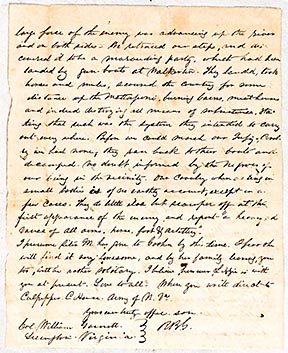 large force of the enemy was advancing up the river
and on both sides - We retraced our steps, and dis
covered it to be a marauding party, which had been
landed by gun boats at Walkerton. They landed, took
horses and mules, scoured the country for some
distance up the Mattaponi, burning barns, meat houses
and indeed destroying all means of subsistence, sta
ting that such was the system they intended to carry
out every where. Before we could reach our Infy, Cavalry
we had none, they ran back to their boats and
decamped. No doubt informed by the negroes of
our being in the vicinity. Our Cavalry when acting in
small bodies is of no earthly account, except in a
few cases. They do little else but scamper off at the
first appearance of the enemy, and report a heavy ad
vance of all arms, horse, foot & artillery.
I presume Sister M. has gone to by this time. I fear she
will find it very lonesome, and by her family leaving you
too, will be rather solitary. I believe is with
you at present. Love to all. When you write direct to
Culpepper C. House Army of N. Va.
Your affec. son
Col. William Garnett
Virginia